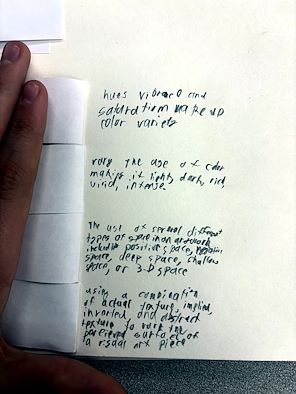 hues vibrance and
saturation make up
color variety
vary the use of color
making it light, dark, rich,
vivid, intense
The use of several different
types of space in an artwork
include positive space, negative
space, deep space, shallow
space, or 3-D space
using a combination
of actual texture, implied,
invented, and abstract
texture to vary the
perceived surface of
a visual art piece